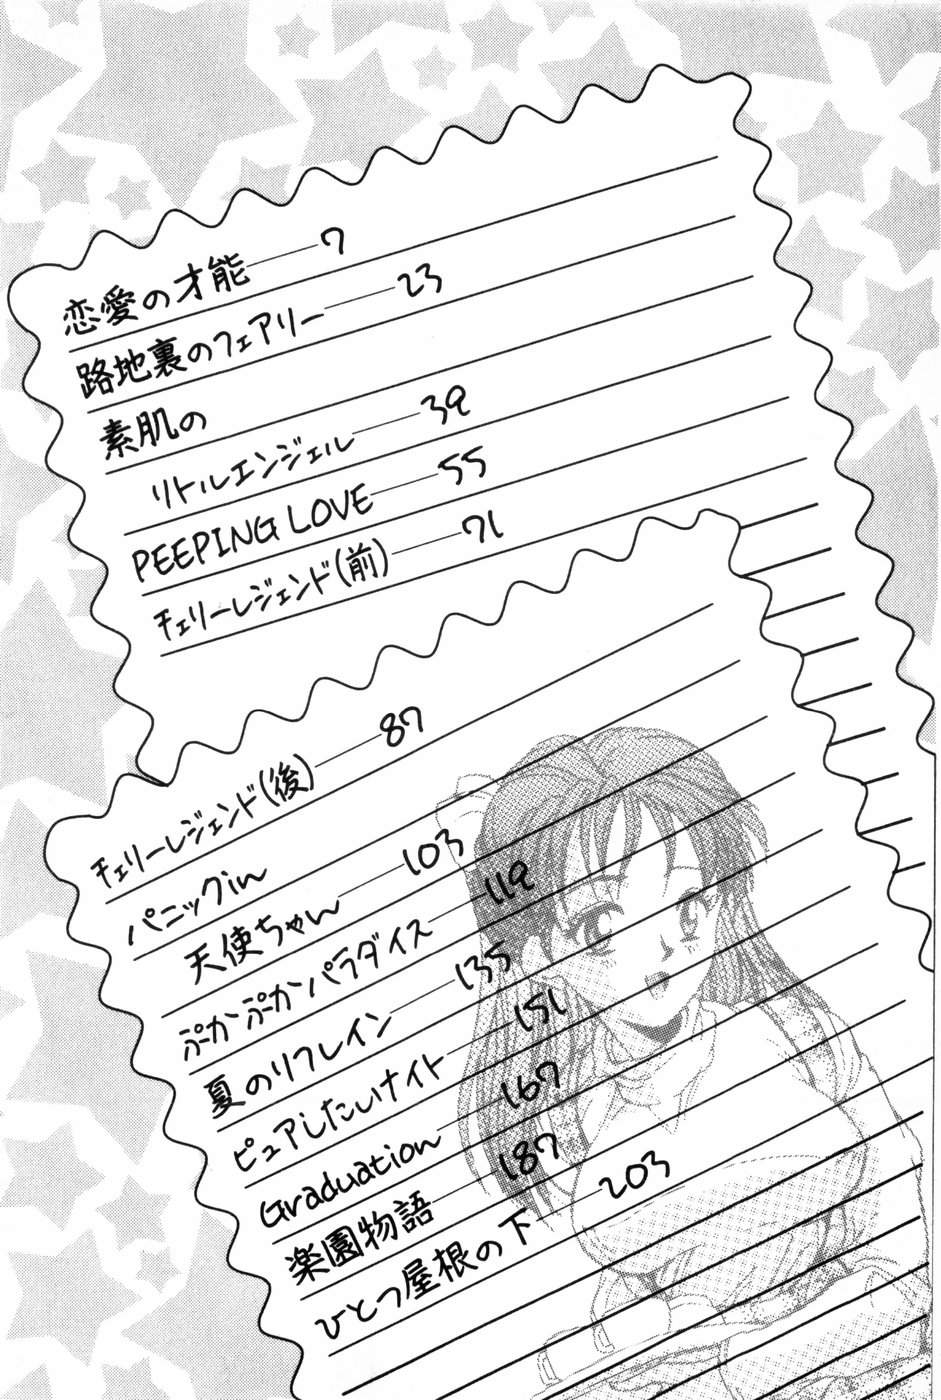 恋愛の才能——7
路地裏のフェアリー——23
素肌の
リトルエンジェル——39
PEEPING LOVE——55
チェリーレジェンド(前)——71
チェリーレジェンド(後)——87
パニックin
天使ちゃん——103
ぷかンぷかンパラダイス——119
夏のリフレイン——135
ピュアしたいナイト——151
Graduation——167
楽園物語——187
ひとつ屋根の下——203